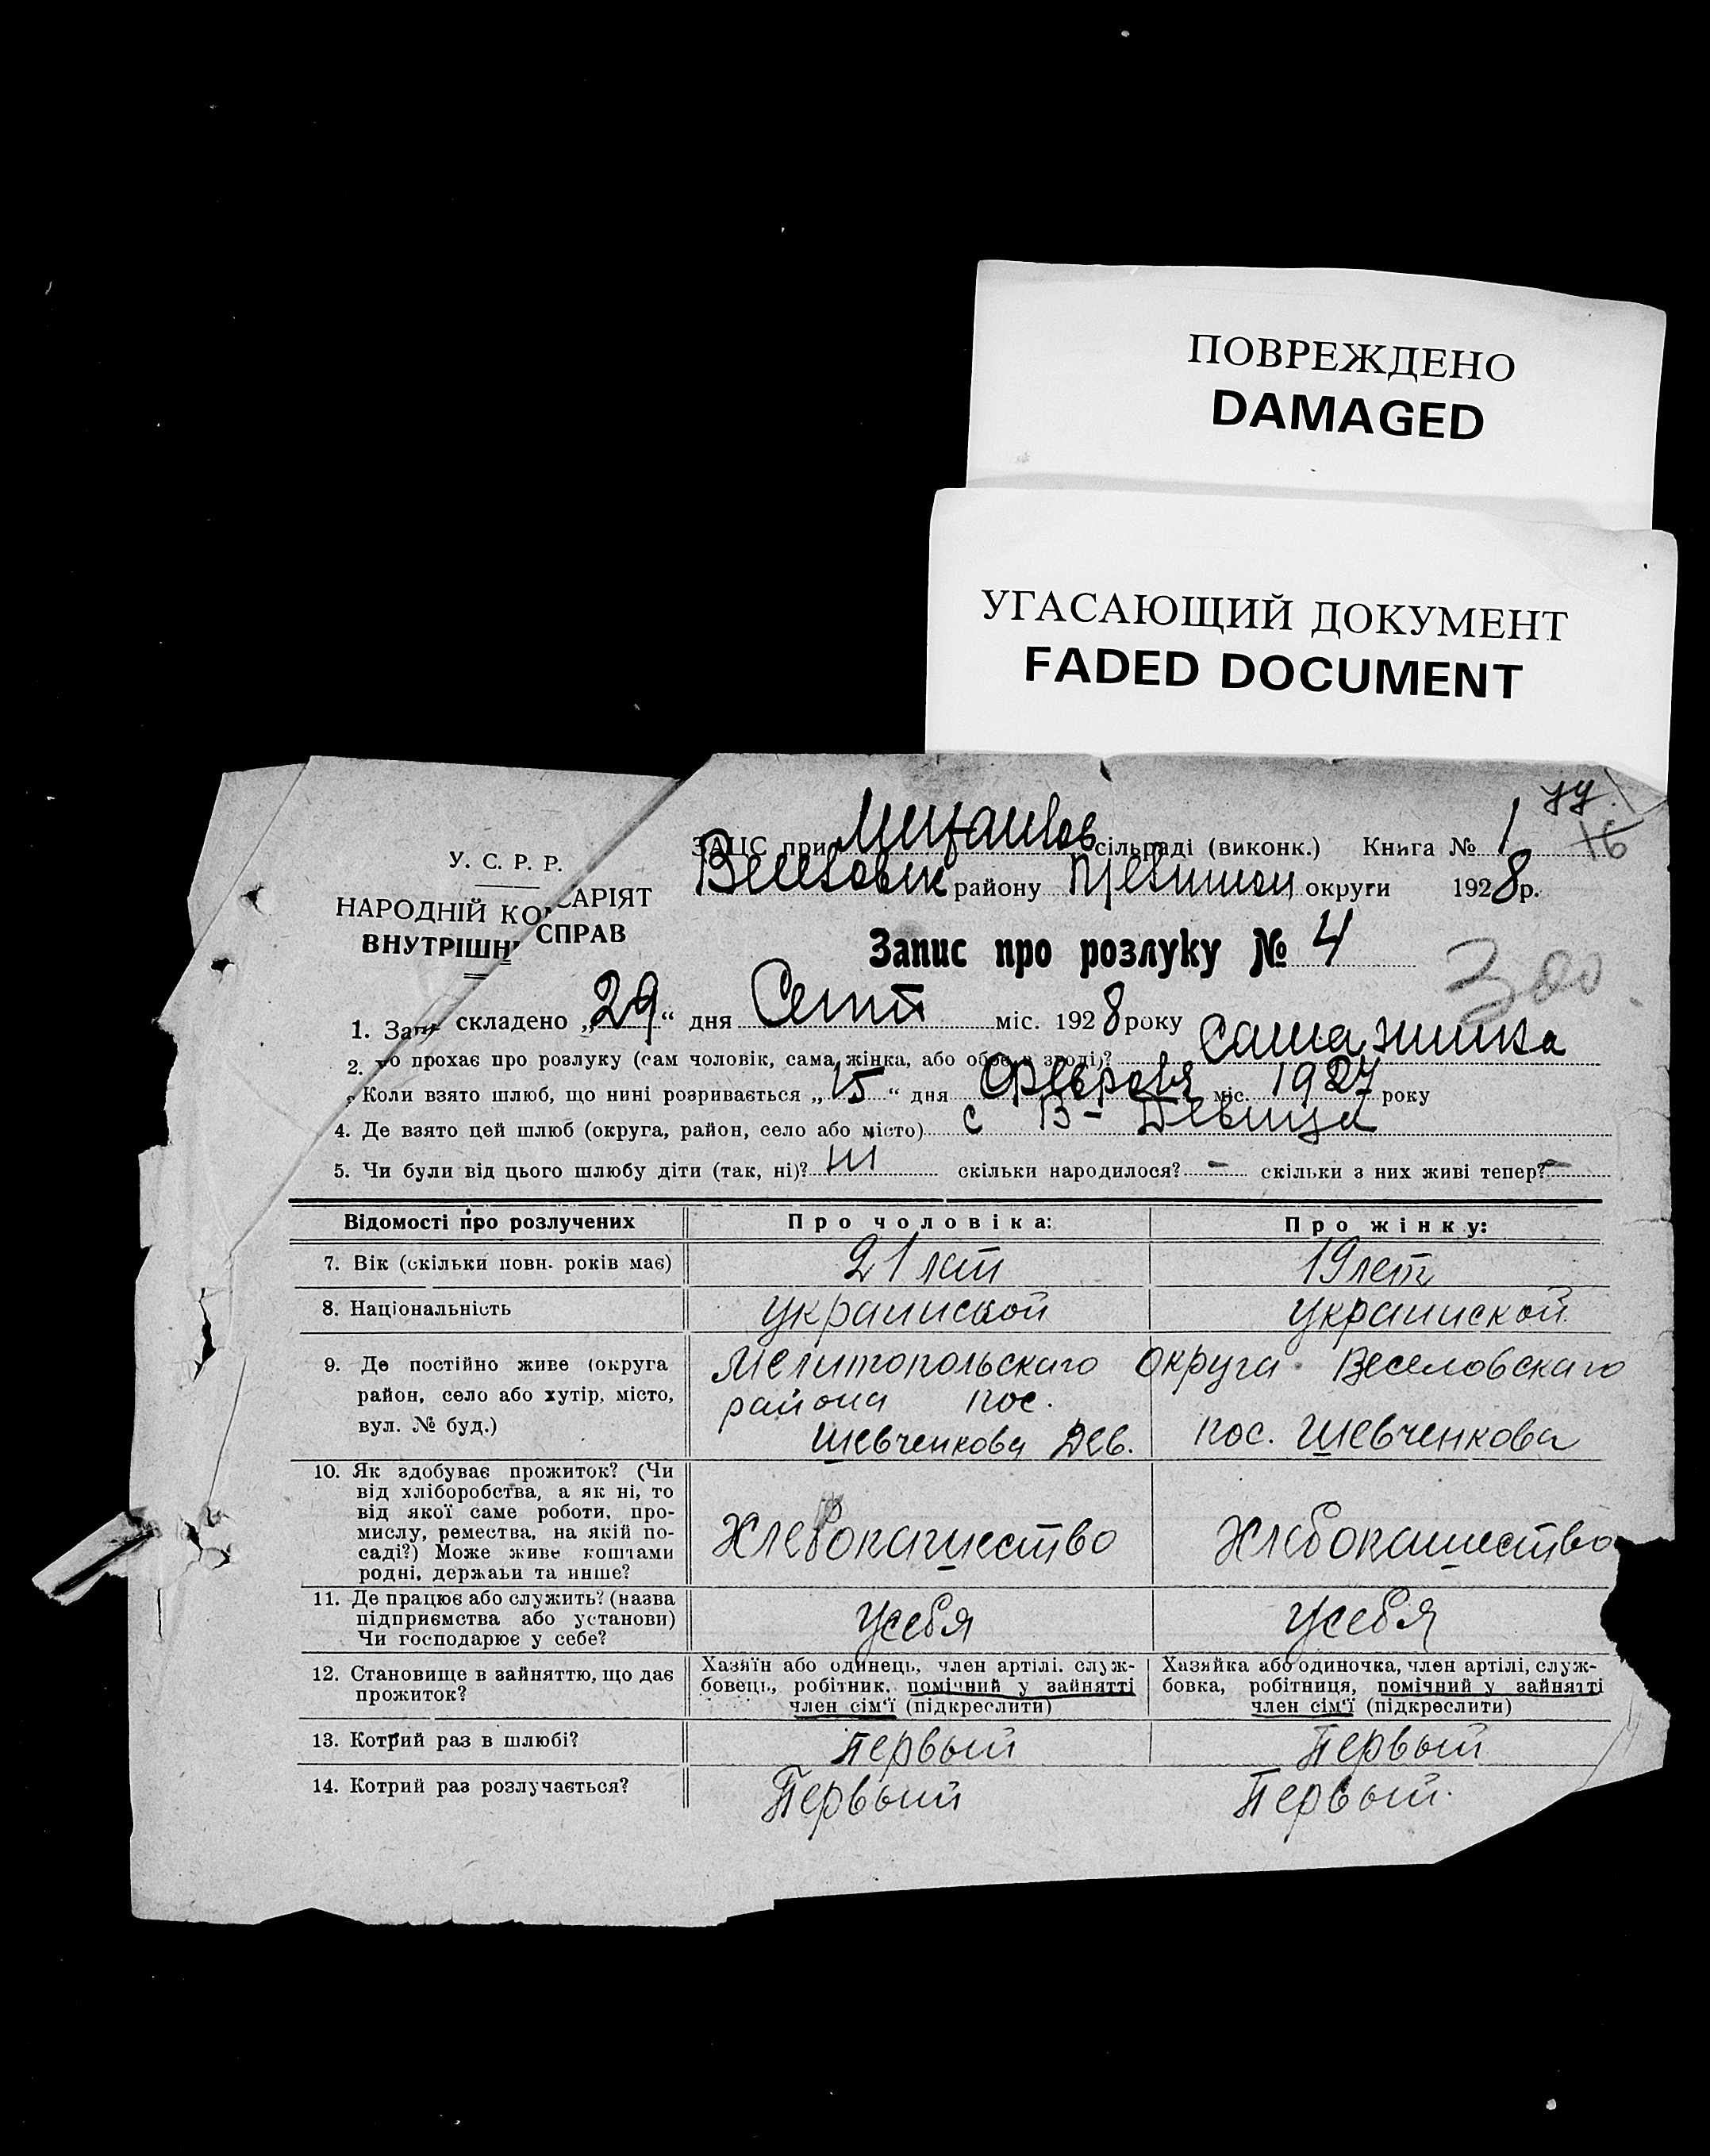 ПОВРЕЖДЕНО
DAMAGED
УГАСАЮЩИЙ ДОКУМЕНТ
FADED DOCUMENT
У. С. Р. Р.
НАРОДНІЙ КО САРІЯТ
ВНУТРІШН СПРАВ
ЗАЦС при сільраді (виконк.) Книга № 1
16
району округи 1928р.
Запис про розлуку № 4
300
1. Зап складено „29“ дня Сент міс. 1928 року
2. то прохає про розлуку (сам чоловік, сама жінка, або обоє в згоді)? Сама жинка
Коли взято шлюб, що нині розривається „15“ дня міс. 1927 року
4. Де взято цей шлюб (округа, район, село або місто) с В-Девица
5. Чи були від цього шлюбу діти (так, ні)? ні скільки народилося? – скільки з них живі тепер? –
Відомості про розлучених
Про чоловіка:
Про жінку:
7. Вік (скільки повн. років має)
21 лет
19 лет
8. Національність
украинской
украинской
9. Де постійно живе (округа
район, село або хутір, місто,
вул. № буд.)
Мелитопольскаго округа Веселовскаго
района пос.
Шевченкова Дев.
пос. Шевченкова
10. Як здобуває прожиток? (Чи
від хліборобства, а як ні, то
від якої саме роботи, про-
мислу, ремества, на якій по-
саді?) Може живе коштами
родні, держави та инше?
Хлебопашество
Хлебопашество
11. Де працює або служить? (назва
підприємства або установи)
Чи господарює у себе?
усебя
усебя
12. Становище в зайняттю, що дає
прожиток?
Хазяїн або одинець, член артілі, служ-
бовець, робітник, помічний у зайнятті
член сім'ї (підкреслити)
Хазяйка або одиночка, член артілі, служ-
бовка, робітниця, помічний у зайнятті
член сім'ї (підкреслити)
13. Котрий раз в шлюбі?
Первый
Первый
14. Котрий раз розлучається?
Первый
Первый.